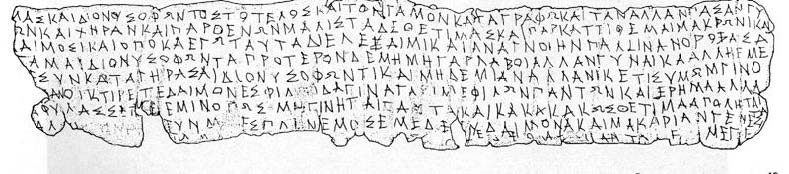 ΜΑΣΚΑΙΔΙΟΝΥΣΟΦΩΝΤΟΣΤΟΤΕΛΟΣΚΑΙΤΟΝΓΑΜΟΝΚΑΤΑΓΡΑΦΩΚΑΙΤΑΝΑΛΛΑΝΠΑΣΑΝΓΥ
ΚΑΙΧΗΡΑΝΚΑΙΠΑΡΘΕΝΩΝΜΑΛΙΣΤΑΔΕΘΕΤΙΜΑΣΚΑΙΠΑΡΚΑΤΤΙΘΕΜΑΙΜΑΚΡΩΝΙΚΑΙ
ΔΑΙΜΟΣΙΚΑΙΟΠΟΚΑΕΓΩΤΑΥΤΑΔΙΕΛΕΞΑΙΜΙΚΑΙΑΝΑΓΝΟΙΗΝΠΑΛΙΝΑΝΟΡΟΞΑΣΑ
ΓΑΜΑΙΔΙΟΝΥΣΟΦΩΝΤΑΠΡΟΤΕΡΟΝΔΕΜΗΜΗΓΑΡΛΑΒΟΙΑΛΛΑΝΓΥΝΑΙΚΑΑΛΛΗΕΜΕ
ΣΥΝΚΑΤΑΓΗΡΑΣΑΙΔΙΟΝΥΣΟΦΩΝΤΙΚΑΙΜΗΔΕΜΙΑΝΑΛΛΑΝΙΚΕΤΙΣΥΜΩΜΓΙΝΟ
ΑΝΟΙΚΤΙΡΕΤΕΔΑΙΜΟΝΕΣΦΙΛΟΙΔΑΓΙΝΑΓΑΡΙΜΕΦΙΛΩΝΠΑΝΤΩΝΚΑΙΕΡΗΜΑΑΛΛΑ
ΦΥΛΑΣΣΕΤΕΕΜΙΝΟΠΩΣΜΗΓΙΝΗΤΑΙΤΑΥΤΑΚΑΙΚΑΚΑΚΑΚΩΣΘΕΤΙΜΑΑΠΟΛΗΤΑΙ
ΥΝΜ ΕΣΠΛΗΝΕΜΟΣΕΜΕΔΕΕΥΔΑΙΜΟΝΑΚΑΙΜΑΚΑΡΙΑΝΓΕΝΕΣ
ΕΜΕ